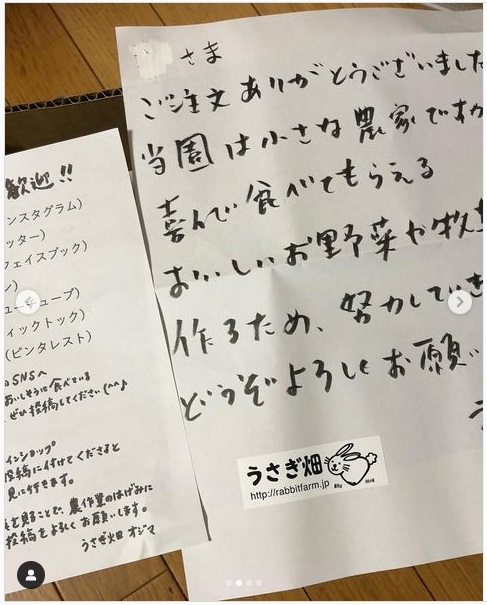 さま
ご注文ありがとうございました
当園は小さな農家ですが
喜んで食べてもらえる
おいしいお野菜や牧
作るため、努力していき
どうぞよろしくお願い
うさぎ畑
http://rabbitfarm.jp
歓迎!!
ンスタグラム)
ッター)
フェイスブック)
ン)
ューチューブ)
ィックトック)
(ピンタレスト)
SNSへ
おいしそうに食べている
ぜひ投稿してください(^^♪
インショップ
投稿に付けてくださると
見に行きます。
を見ることで、農作業のはげみに
投稿をよろしくお願いします。
うさぎ畑 オジマ